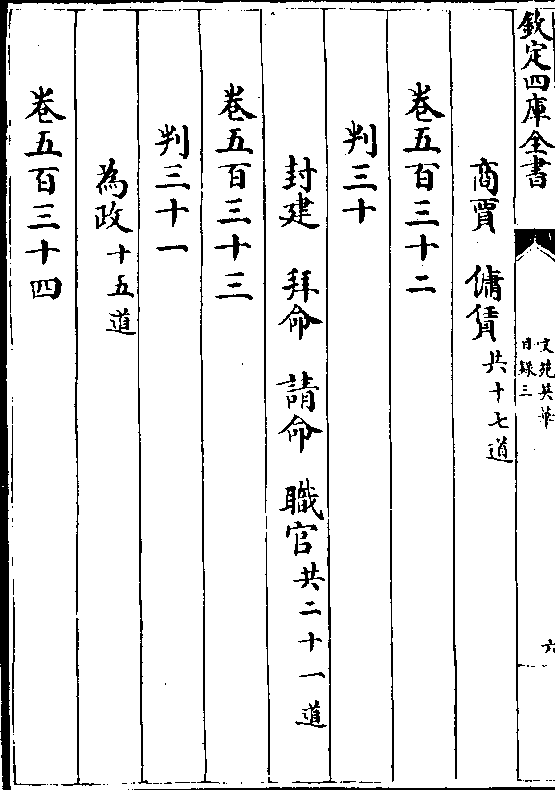 欽定四庫全書
文苑英華
目録三
六
商賈 傭賃共十七道
卷五百三十二
判三十
封建 拜命 請命 職官共二十一道
卷五百三十三
判三十一
為政十五道
卷五百三十四